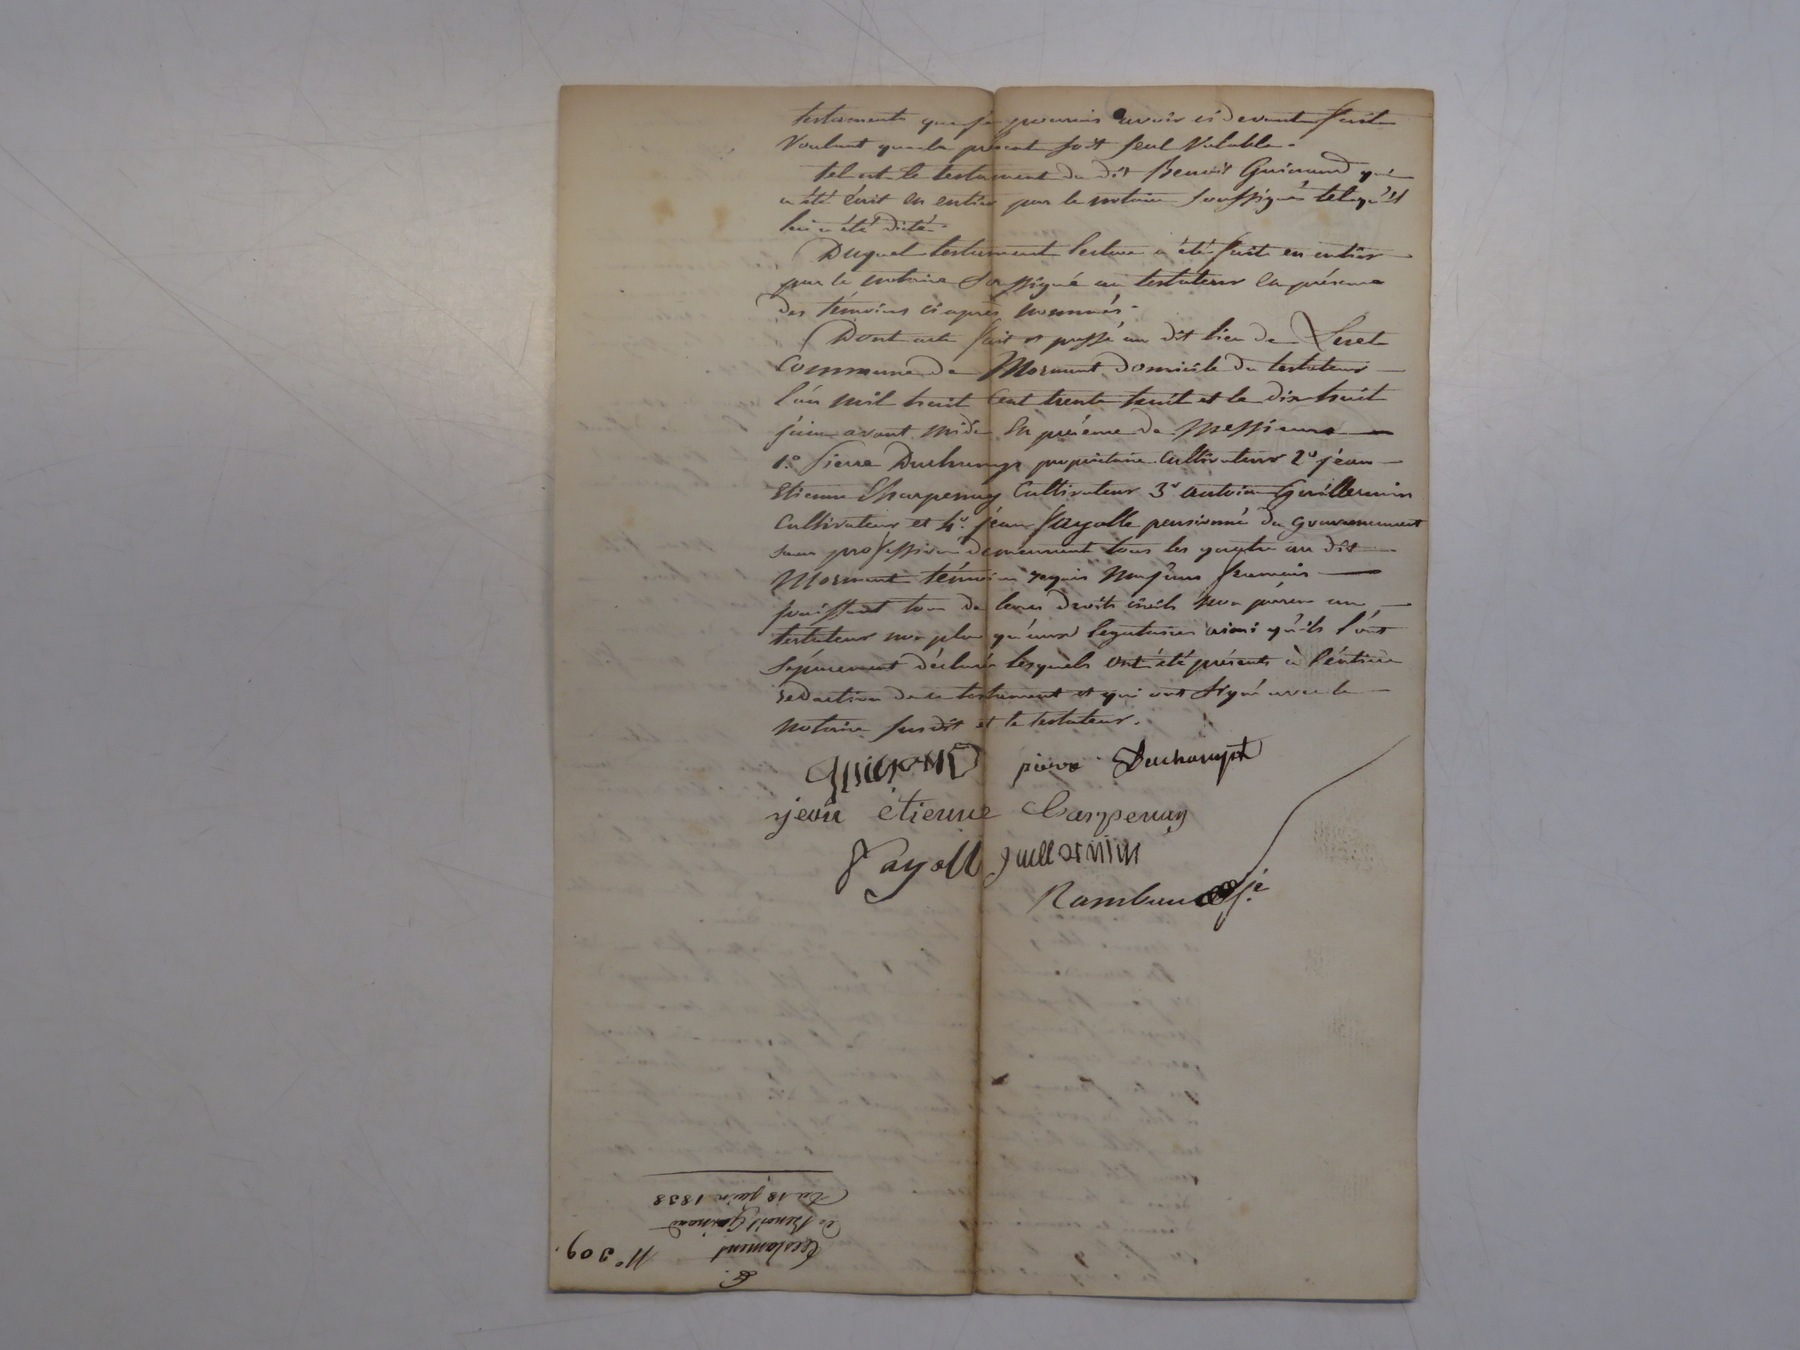 testament que je pourrais avoir ci devant fait
Voulant que le présent soit seul Valable.
tel est le testament du dit Benoit Guicnard qui
a été écrit en entier par le notaire soussigné tel qu'il
lui a été dicté.
Duquel testament lecture a été faite en entier
par le notaire soussigné au testateur en présence
des témoins ci après nommés.
Dont acte fait et passé au dit lieu de
Commune de Mornant domicile du testateur
l'an mil huit cent trente huit et le dix huit
juin avant midi En présence de Messieurs
1.º Pierre Duchamp propriétaire Cultivateur 2º jean
Etienne Charpenay Cultivateur 3º antoine Guillermin
Cultivateur et 4º. jean fayolle pensionné du gouvernement
sans profession demeurant tous les quatre au dit
Mornant témoins requis Majeurs français
jouissant tous de leurs droits civils non parens au
testateur non plus qu'aux légataires ainsi qu'ils l'ont
séparement déclaré lesquels ont été présents à l'entière
redaction de ce testament et qui ont signé avec le
notaire susdit et le testateur.
pierre Duchampt
jean étienne Charpenay
Fayoll guillermin
Rambaud
Testament
de Benoit
Du 18 juin 1838
Nº 309.